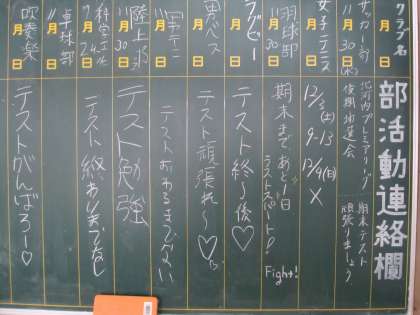 部活動連絡欄
クラブ名
月 日
サッカー部
11月30日(水)
北河内プレミアリーグ
後期 抽選会
期末テスト
頑張りましょう
女子テニス
月 日
12/3(土)
9-13
12/4(日)
×
羽球部
11月30日
期末まであと1日
ラストスパート!
Fight!
ラグビー
月 日
テスト終〜後♡
男バス
月 日
テスト頑張れ〜♡
男テニ
月 日
テストおわるまでない
陸上部
11月30日
テスト勉強
科学
月 日
テスト終わりまでなし
卓球部
11月 日
吹奏楽
月 日
テストがんばろー!♡